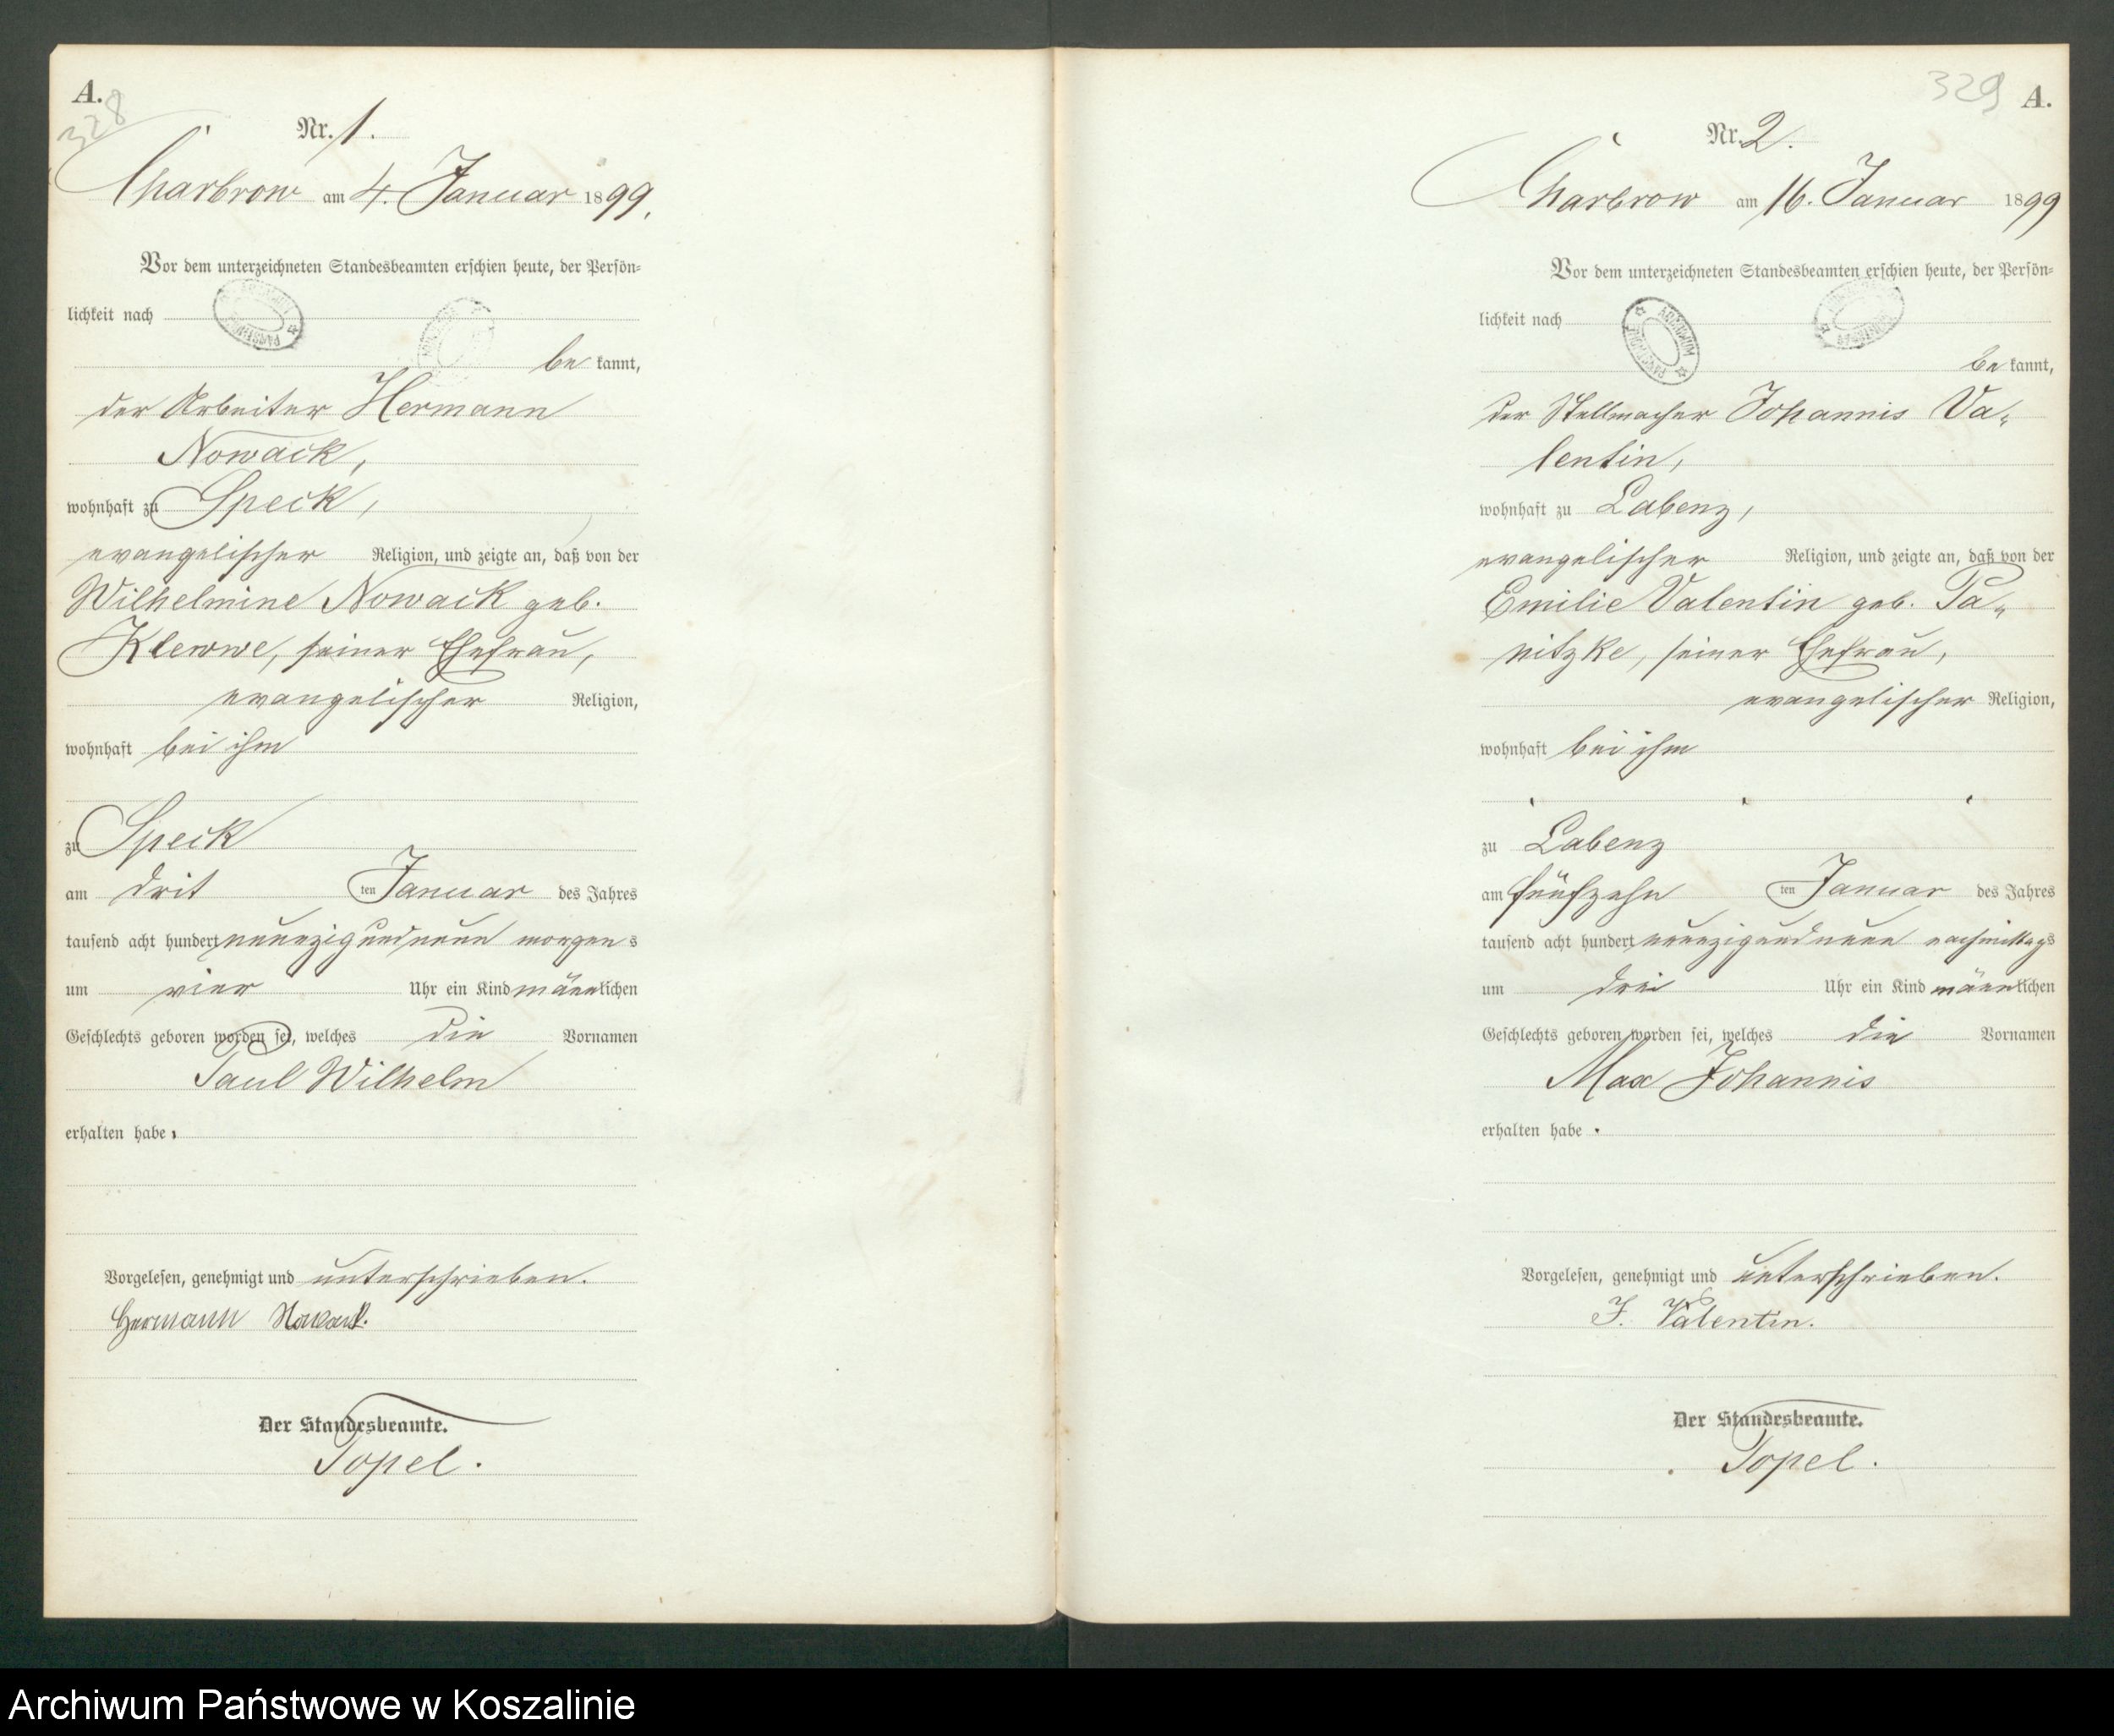 A.
328
Nr. 1.
Charbrow am 4. Januar 1899.
Vor dem unterzeichneten Standesbeamten erschien heute, der Persön-
lichkeit nach
be kannt,
der Arbeiter Hermann
Nowack,
wohnhaft zu Speck,
evangelischer Religion, und zeigte an, daß von der
Wilhelmine Nowack geb.
Klewwe, seiner Ehefrau,
evangelischer Religion,
wohnhaft bei ihm
zu Speck
am drit ten Januar des Jahres
tausend acht hundert neunzig und neun morgens
um vier Uhr ein Kind männlichen
Geschlechts geboren worden sei, welches die Vornamen
Paul Wilhelm
erhalten habe.
Vorgelesen, genehmigt und unterschrieben.
Hermann Nowack.
Der Standesbeamte.
Topel.
329 A.
Nr. 2.
Charbrow am 16. Januar 1899
Vor dem unterzeichneten Standesbeamten erschien heute, der Persön-
lichkeit nach
ARCHIWUM
be kannt,
der Stellmacher Johannis Va-
lentin,
wohnhaft zu Labenz,
evangelischer Religion, und zeigte an, daß von der
Emilie Valentin geb. Pa-
nitzke, seiner Ehefrau,
evangelischer Religion,
wohnhaft bei ihm
zu Labenz
am fünfzehn ten Januar des Jahres
tausend acht hundert neunzig und neun nachmittags
um drei Uhr ein Kind männlichen
Geschlechts geboren worden sei, welches die Vornamen
Max Johannis
erhalten habe.
Vorgelesen, genehmigt und unterschrieben.
J. Valentin.
Der Standesbeamte.
Topel.
Archiwum Państwowe w Koszalinie